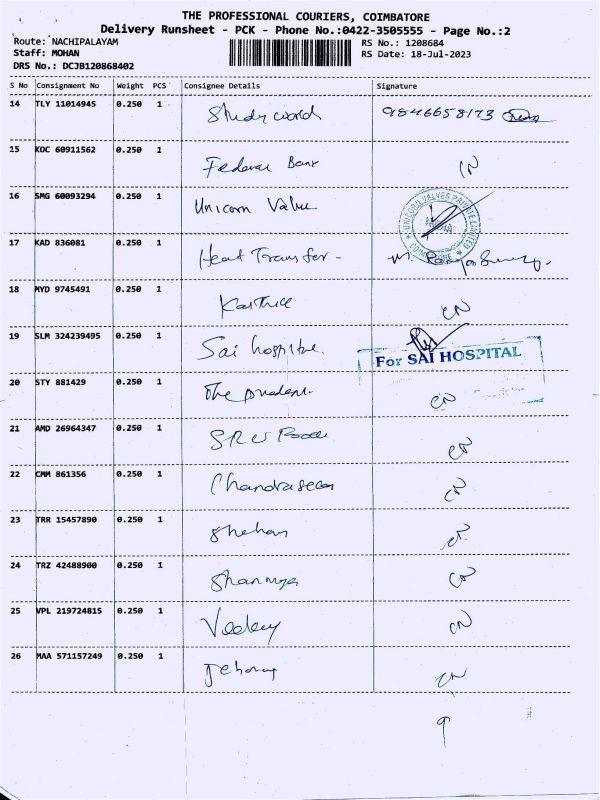 THE PROFESSIONAL COURIERS, COIMBATORE
Delivery Runsheet - PCK - Phone No.:0422-3505555 - Page No.:2
Route: NACHIPALAYAM
Staff: MOHAN
DRS No.: DCJB120868402
RS No.: 1208684
RS Date: 18-Jul-2023
S No Consignment No Weight PCS Consignee Details Signature
14 TLY 11014945 0.250 1 Study world 9846658173
15 KOC 60911562 0.250 1 Federal Bank CN
16 SMG 60093294 0.250 1 Unicorn Valve
UNICORN VALVES PRIVATE LIMITED
17 KAD 836081 0.250 1 Heat Transfer -
18 MYD 9745491 0.250 1 CN
19 SLM 324239495 0.250 1 Sai hospital.
For SAI HOSPITAL
20 STY 881429 0.250 1 The CN
21 AMD 26964347 0.250 1 CN
22 CMM 861356 0.250 1 CN
23 TRR 15457890 0.250 1
24 TRZ 42488900 0.250 1 CN
25 VPL 219724815 0.250 1 CN
26 MAA 571157249 0.250 1 CN
9